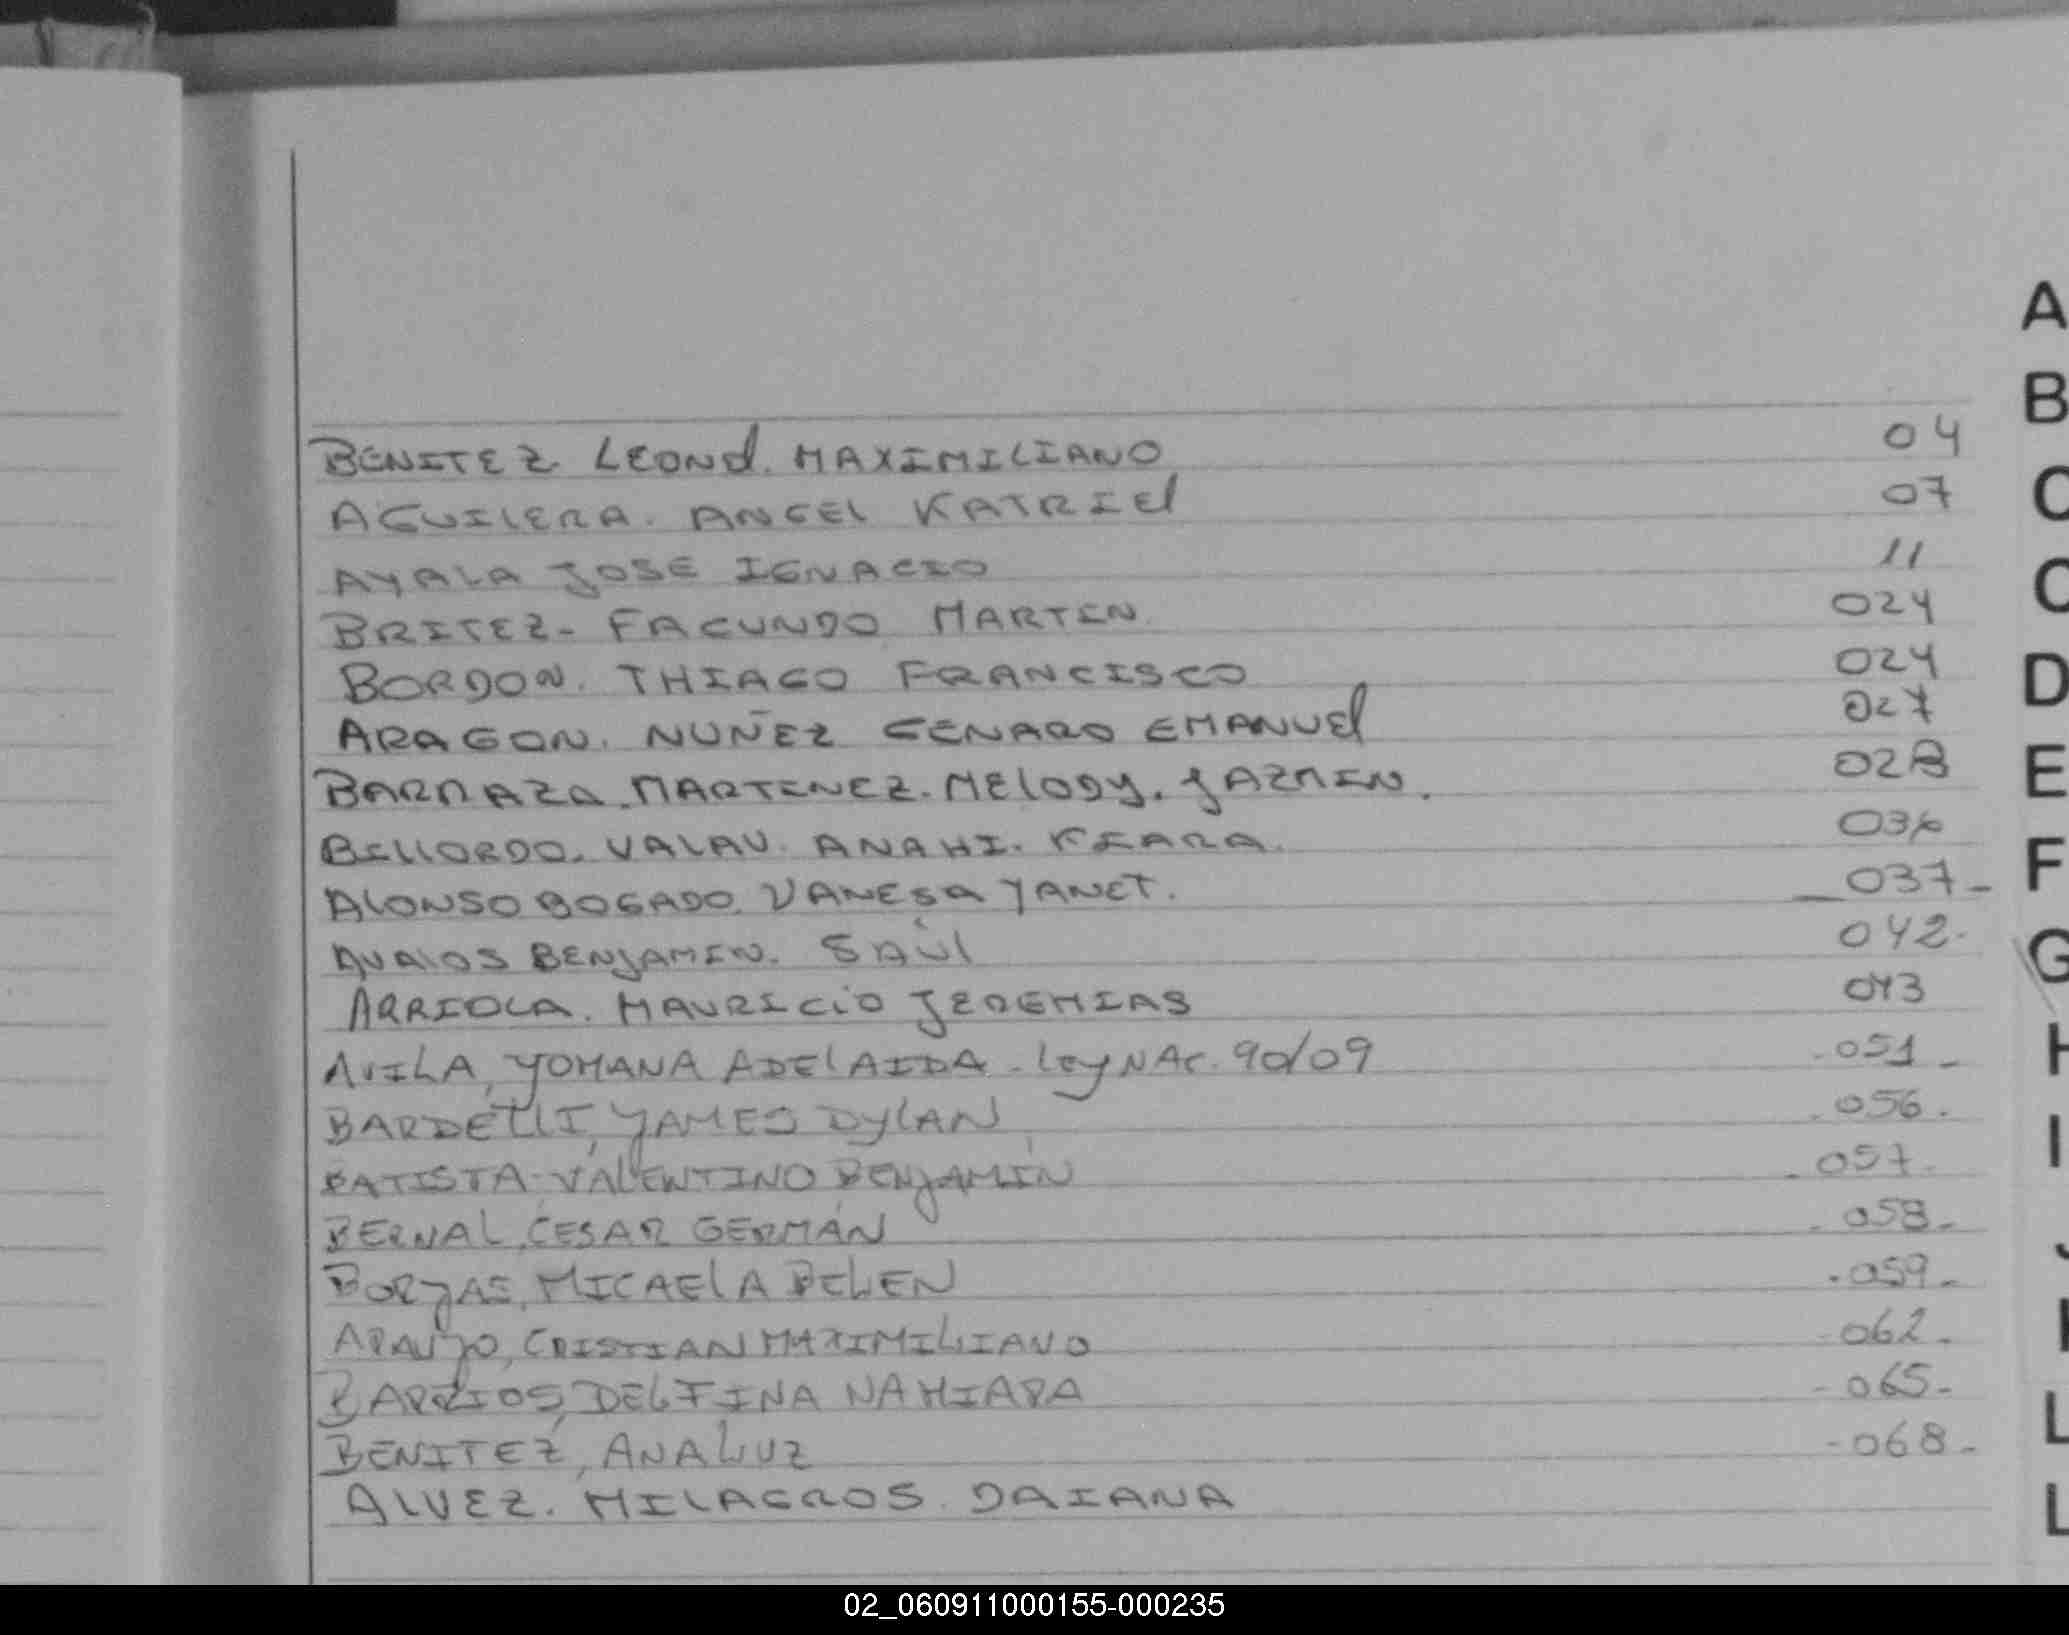 BENITEZ LEONel. MAXIMILIANO 04
AGUILERA. ANGEL KATRIEl 07
AYALA JOSE IGNACIO 11
BRITEZ- FACUNDO MARTIN 024
BORDON. THIAGO FRANCISCO 024
ARAGON. NUÑEZ GENARO EMANUEl 027
BARRAZA. MARTINEZ. MElODY. JAZMIN. 028
BEllORDO. ANAHI. KIARA. 036
AlONSO BOGADO. VANESA YANET. 037-
AVAlOS BENJAMIN. SAÚl 042-
ARRIOLA. MAURICIO JEREMIAS 043
AVILA, YOHANA ADElAIDA - ley NAc. 90/09 -051-
BARDELLI, YAMES DYLAN -056.
BATISTA-VALENTINO BENJAMÍN -057-
BERNAL, CESAR GERMÁN -058-
BORJAS, MICAElA BELEN -059-
ARAUJO, CRISTIAN MAXIMILIANO -062-
BARRIOS, DELFINA NAHIARA -065-
BENITEZ, ANA LUZ -068-
ALVEZ. MILAGROS. DAIANA
A
B
C
C
D
E
F
G
H
I
J
K
L
L
02_060911000155-000235